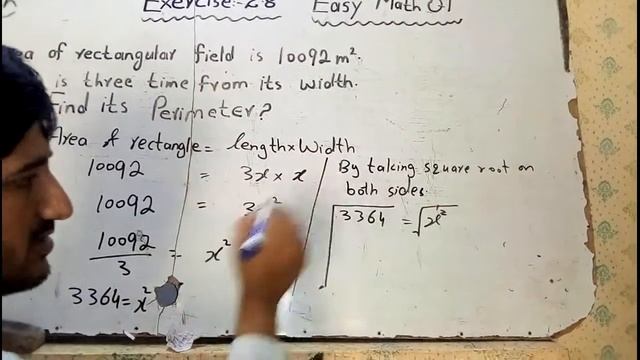 Exercise:-2.8 Easy Math 01
of rectangular field is 10092 m².
is three time from its width.
Find its Perimeter?
Area of rectangle = length×Width
10092 = 3x × x
10092 =
10092/3 = x²
3364 = x²
By taking square root on
both sides.
√3364 = √x²